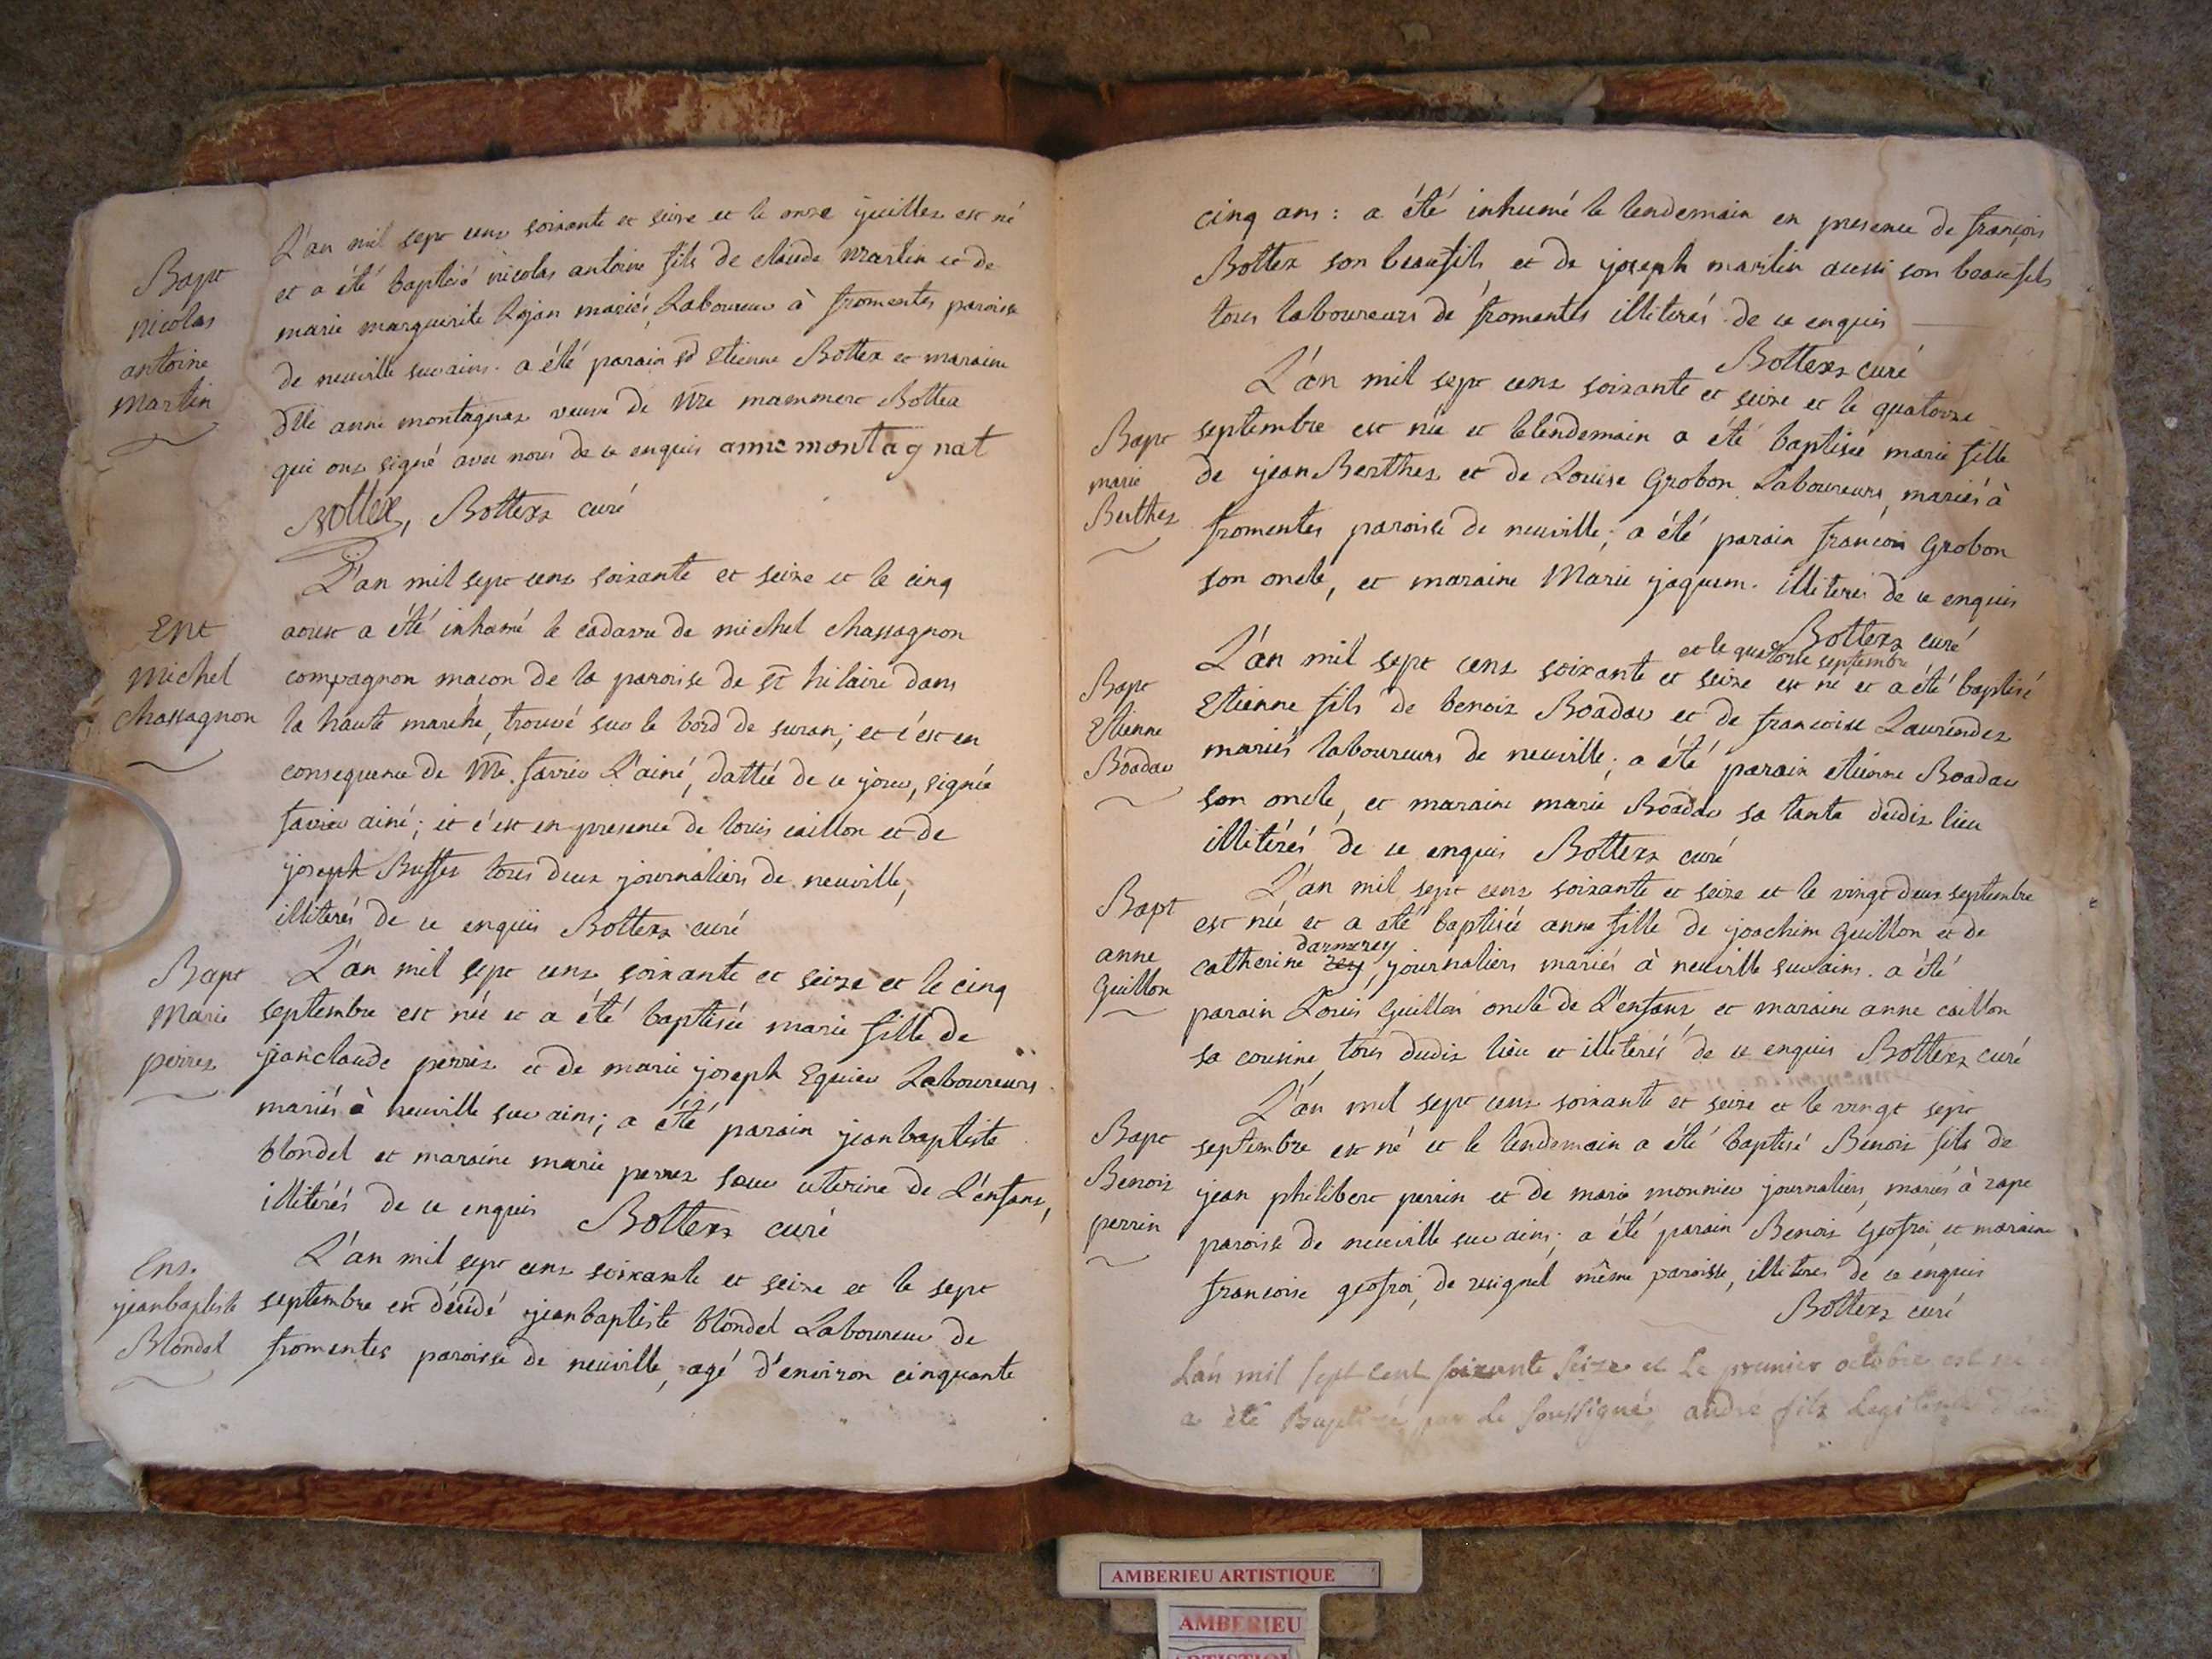 Bapt
nicolas
antoine
martin
L'an mil sept cens soixante et seize et le onze juillet est né
et a été baptisé nicolas antoine fils de claude martin et de
marie marguerite mariés, Laboureur à fromentes paroisse
de neuville sur ains. a été parain sr Etienne Bottex et maraine
dlle anne montagnat veuve de Mre mammert Bottex
qui ont signé avec nous de ce enquis anne montagnat
Bottex, Bottex curé
Ent
Michel
Chassagnon
L'an mil sept cens soixante et seize et le cinq
aoust a été inhumé le cadavre de michel chassagnon
compagnon macon de la paroisse de st hilaire dans
la haute marche, trouvé sur le bord de suran; et c'est en
consequence de Mre. L'ainé, dattée de ce jour, signée
ainé; et c'est en presence de louis caillon et de
joseph Buffet tous deux journaliers de neuville,
illiterés de ce enquis Bottex curé
Bapt
Marie
perret
L'an mil sept cens soixante et seize et le cinq
septembre est née et a été baptisée marie fille de
jeanclaude perret et de marie joseph Laboureurs
mariés à neuville sur ains; a été parain jean baptiste
blondel et maraine marie perret soeur uterine de L'enfant,
illitérés de ce enquis Bottex curé
Ent.
jeanbaptiste
Blondel
L'an mil sept cens soixante et seize et le sept
septembre est décédé jeanbaptiste blondel Laboureur de
fromentes paroisse de neuville, agé d'environ cinquante
cinq ans: a été inhumé le lendemain en presence de françois
Bottex son beaufils, et de joseph martin aussi son beaufils
tous laboureurs de fromentes illiterés de ce enquis
Bottex curé
Bapt
marie
Berthet
L'an mil sept cens soixante et seize et le quatorze
septembre est née et le lendemain a été baptisée marie fille
de jean Berthet et de Louise Grobon Laboureurs, mariés à
fromentes paroisse de neuville; a été parain françois Grobon
son oncle, et maraine Marie jaquem. illiterés de ce enquis
Bottex curé
Bapt
Etienne
Boadau
et le quatorze septembre
L'an mil sept cens soixante et seize est né et a été baptisé
Etienne fils de benoit Boadau et de francoise Laurendet
mariés laboureurs de neuville; a été parain etienne Boadau
son oncle, et maraine marie Boadau sa tante dudit lieu
illitérés de ce enquis Bottex curé
Bapt
anne
Guillon
L'an mil sept cens soixante et seize et le vingt deux septembre
est née et a été baptisée anne fille de joachim Guillon et de
darmerey
catherine rey, journaliers mariés à neuville sur ains. a été
parain Louis Guillon oncle de L'enfant et maraine anne caillon
sa cousine, tous dudit lieu et illiterés de ce enquis Bottex curé
Bapt
Benoit
perrin
L'an mil sept cens soixante et seize et le vingt sept
septembre est né et le lendemain a été baptisé Benoit fils de
jean philibert perrin et de marie monnier journaliers, mariés à rape
paroisse de neuville sur ains; a été parain Benoit Geofroi, et maraine
francoise geofroi, de même paroisse, illiteres de ce enquis
Bottex curé
L'an mil sept cent soixante seize et le premier octobre est né
a été Baptisé par le soussigné, andré fils legitime
AMBERIEU ARTISTIQUE
AMBERIEU
ARTISTIQUE